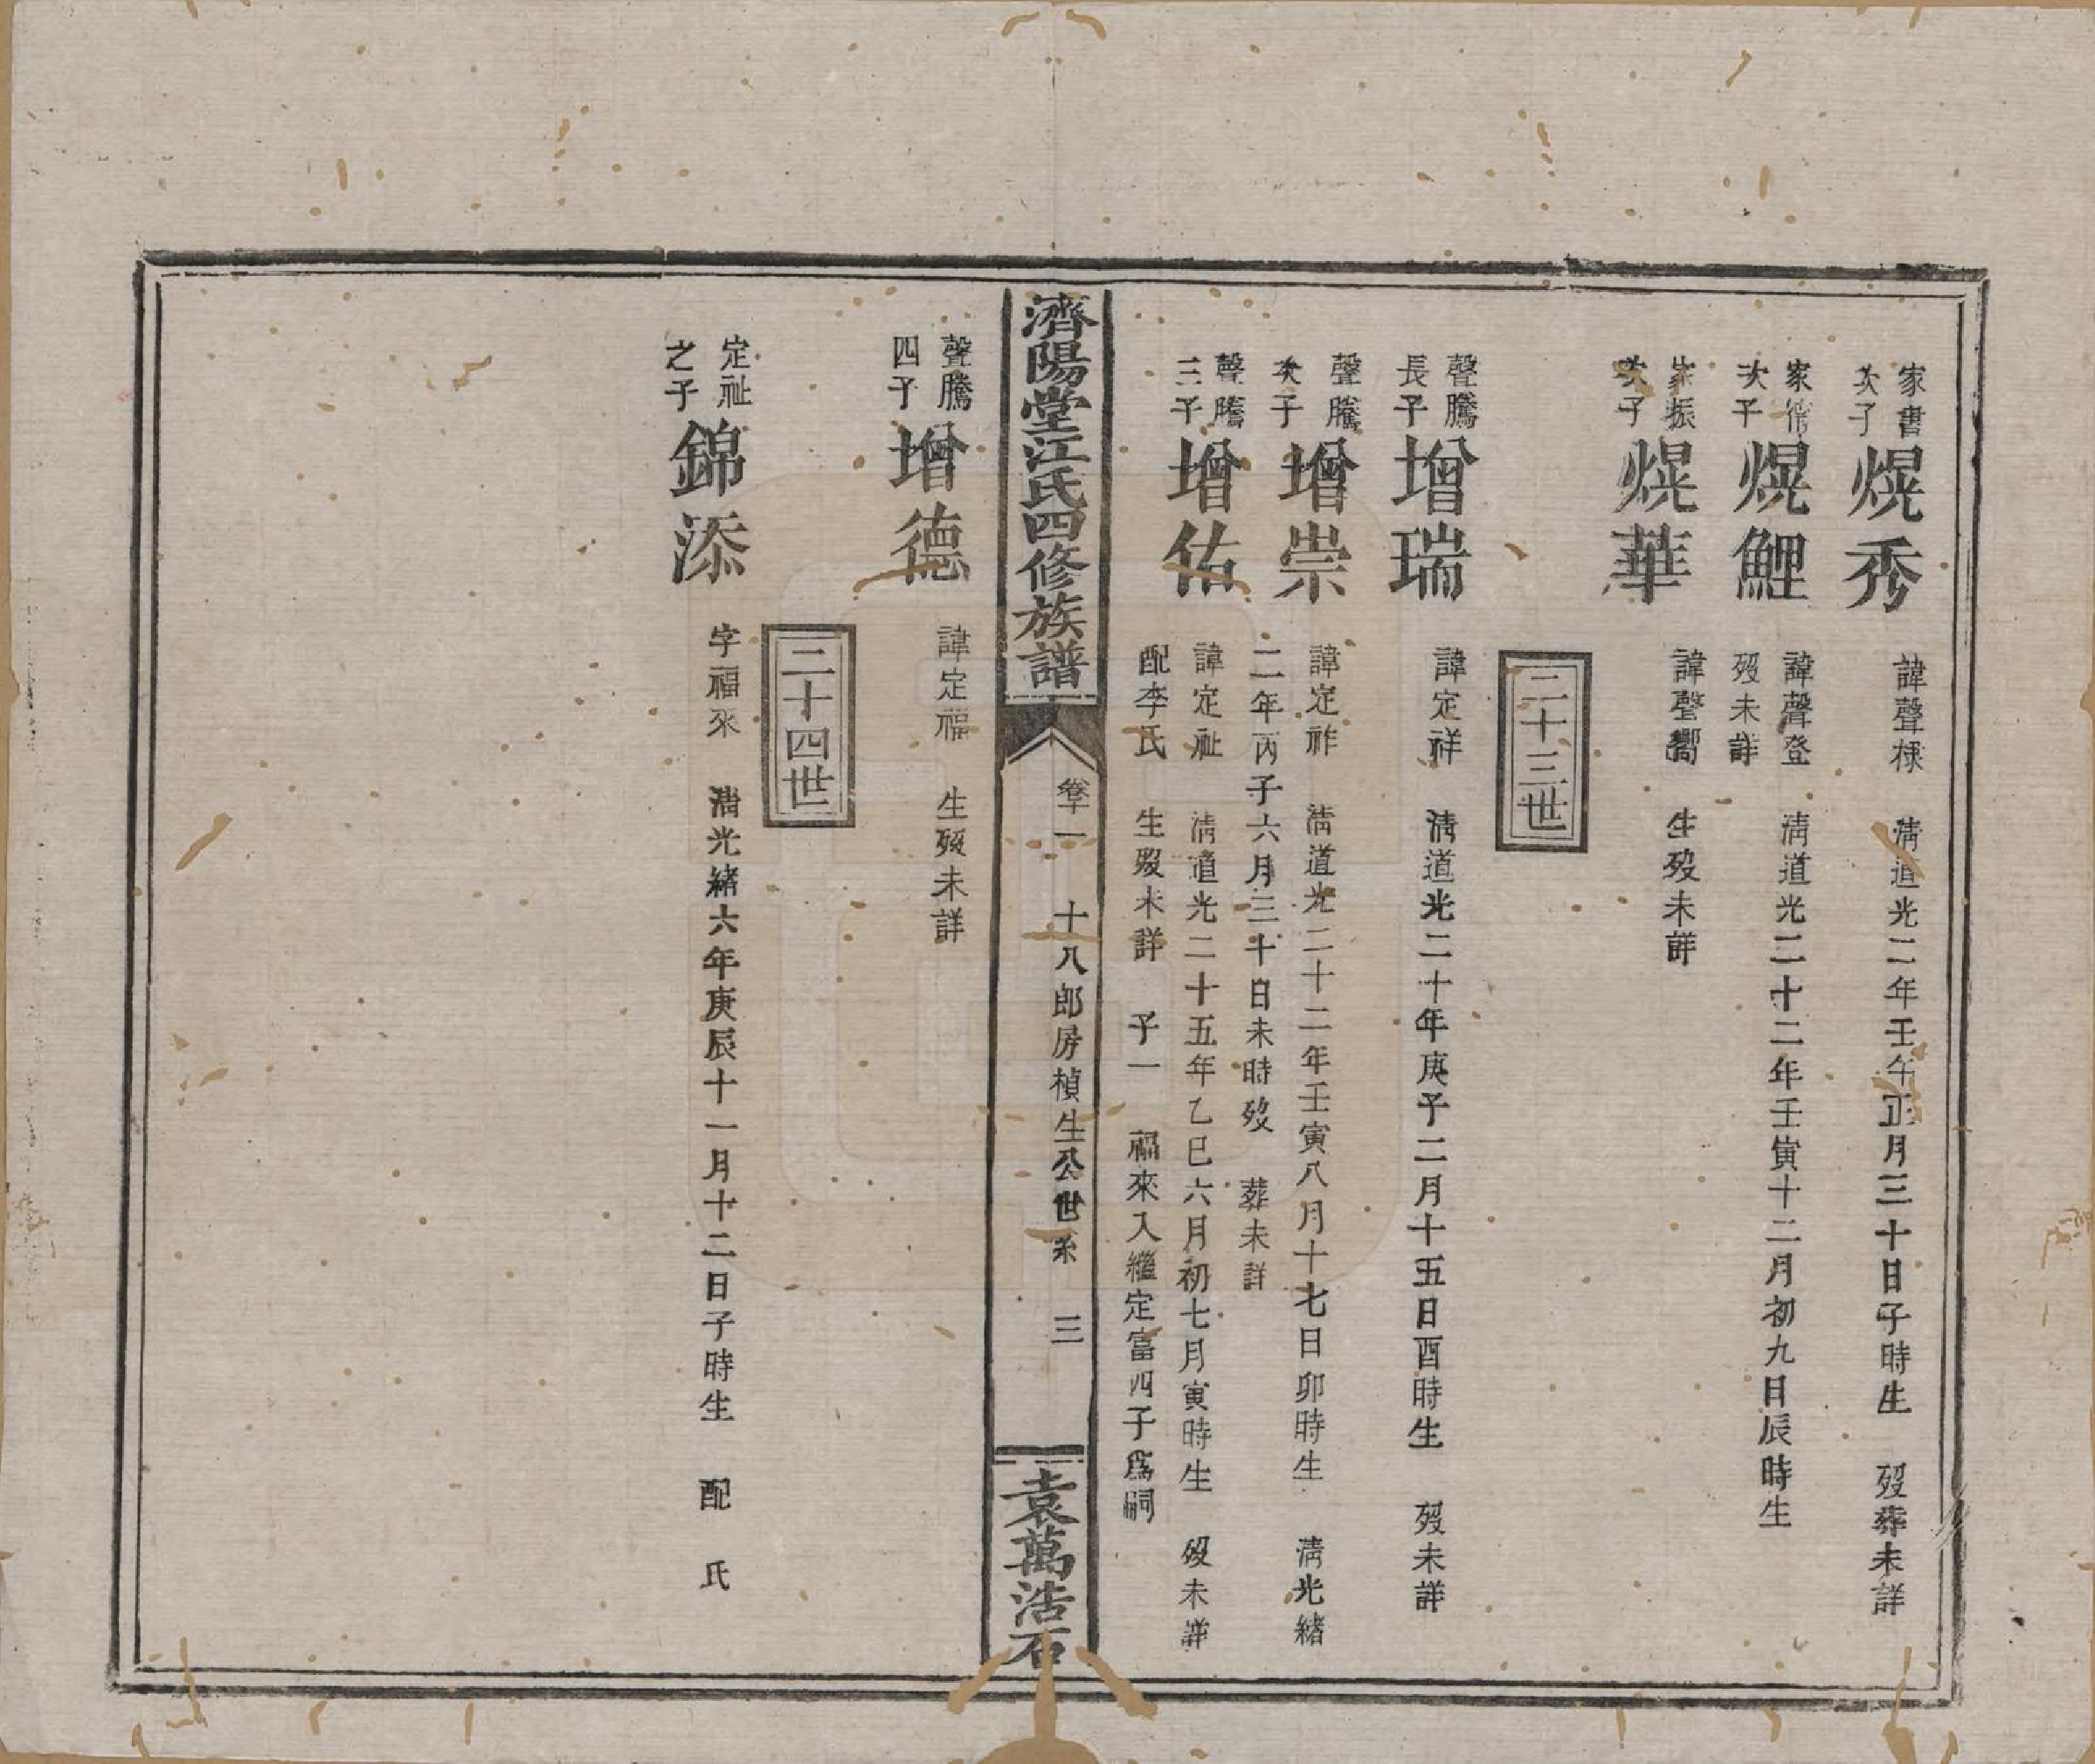 家書
次子
熀秀
諱聲椂 清道光二年壬午正月三十日子時生 歿葬未詳
家
次子
熀鯉
諱聲登 清道光二十二年壬寅十二月初九日辰時生
歿未詳
家振
次子
熀華
諱聲嚮 生歿未詳
二十三世
聲騰
長子
增瑞
諱定祥 清道光二十年庚子二月十五日酉時生 歿未詳
聲騰
次子
增崇
諱定祚 清道光二十二年壬寅八月十七日卯時生 清光緒
二年丙子六月三十日未時歿 葬未詳
聲騰
三子
增佑
諱定祉 清道光二十五年乙巳六月初七月寅時生 歿未詳
配李氏 生歿未詳 子一 福來入繼定富四子爲嗣
濟陽堂江氏四修族譜
卷十一 十八郎房楨生公世系 三
袁萬浩石
聲騰
四子
增德
諱定福 生歿未詳
二十四世
定祉
之子
錦添
字福來 清光緒六年庚辰十一月十二日子時生 配 氏